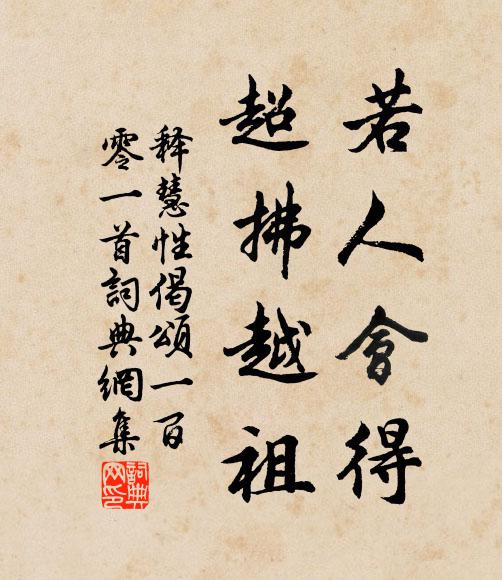 若人會得
超拂越祖
释慧性偈頌一百
零一首詞典網集
詞典网印